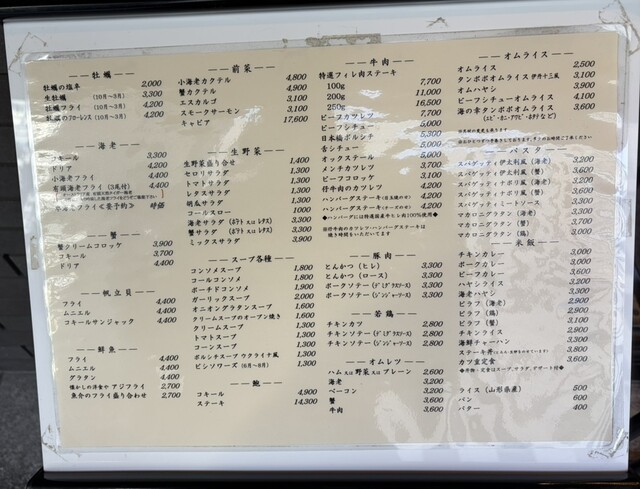 — — 牡蠣 — —
牡蠣の塩辛 2,000
生牡蠣 (10月〜3月) 3,300
牡蠣フライ (10月〜3月) 4,200
牡蠣のフローレンス (10月〜3月) 4,200
— — 海老 — —
コキール 3,300
ドリア 4,200
小海老フライ 4,400
有頭海老フライ (3尾付) 4,400
車海老フライ <要予約> 時価
— — 蟹 — —
蟹クリームコロッケ 3,900
コキール 4,400
ドリア 4,400
— — 帆立貝 — —
フライ 4,400
ムニエル 4,400
コキールサンジャック 4,400
— — 鮮魚 — —
フライ 4,400
ムニエル 4,400
グラタン 4,400
懐かしの洋食や アジフライ 2,700
魚介のフライ盛り合わせ 2,700
— — 前菜 — —
小海老カクテル 4,800
蟹カクテル 4,900
エスカルゴ 3,100
スモークサーモン 3,100
キャビア 17,600
— — 生野菜 — —
生野菜盛り合せ 1,400
セロリサラダ 1,300
トマトサラダ 1,300
レタスサラダ 1,300
胡瓜サラダ 1,300
コールスロー 1000
海老サラダ (ポテト又はレタス) 3,300
蟹サラダ (ポテト又はレタス) 3,900
ミックスサラダ 3,900
— — スープ各種 — —
コンソメスープ 1,800
コールコンソメ 1,800
ポーチドコンソメ 1,900
ガーリックスープ 2,000
オニオングラタンスープ 1,600
クリームスープのオーブン焼き 1,600
クリームスープ 1,300
トマトスープ 1,300
コーンスープ 1,300
ボルシチスープ ウクライナ風 1,300
ビシソワーズ (6月〜8月) 1,300
— — 鮑 — —
コキール 4,900
ステーキ 14,300
— — 牛肉 — —
特選フィレ肉ステーキ
100g 7,700
200g 11,000
250g 16,500
ビーフカツレツ 7,700
ビーフシチュー 5,000
日本橋ボルシチ 5,300
タンシチュー 5,000
オックステール 5,000
メンチカツレツ 3,700
ビーフコロッケ 3,100
仔牛肉のカツレツ 4,200
ハンバーグステーキ (目玉焼のせ) 4,200
ハンバーグステーキ (チーズのせ) 4,200
◆ハンバーグには特選国産牛ヒレ肉100%使用◆
— — 豚肉 — —
とんかつ (ヒレ) 3,300
とんかつ (ロース) 3,300
ポークソテー (デミグラスソース) 3,300
ポークソテー (ジンジャーソース) 3,300
— — 若鶏 — —
チキンカツ 2,800
チキンソテー (デミグラスソース) 2,800
チキンソテー (ジンジャーソース) 2,800
— — オムレツ — —
ハム又は野菜又はプレーン 2,600
海老 3,200
ベーコン 3,200
蟹 3,600
牛肉 3,600
— — オムライス — —
オムライス 2,500
タンポポオムライス 伊丹十三風 3,100
オムハヤシ 3,900
ビーフシチューオムライス 4,100
海の幸タンポポオムライス 3,600
— — パスタ — —
スパゲッティ伊太利風 (海老) 3,200
スパゲッティ伊太利風 (蟹) 3,600
スパゲッティナポリ風 (海老) 3,200
スパゲッティナポリ風 (蟹) 3,600
スパゲッティミートソース 3,300
マカロニグラタン (海老) 3,300
マカロニグラタン (蟹) 3,700
マカロニグラタン (鶏) 3,000
— — 米飯 — —
チキンカレー 3,000
ポークカレー 3,000
ビーフカレー 3,600
ハヤシライス 3,200
海老ハヤシ 3,300
ピラフ (海老) 2,900
ピラフ (鶏) 2,900
ピラフ (蟹) 3,100
チキンライス 2,900
海鮮チャーハン 3,300
カツ重定食 3,600
ライス (山形県産) 500
パン 600
バター 400